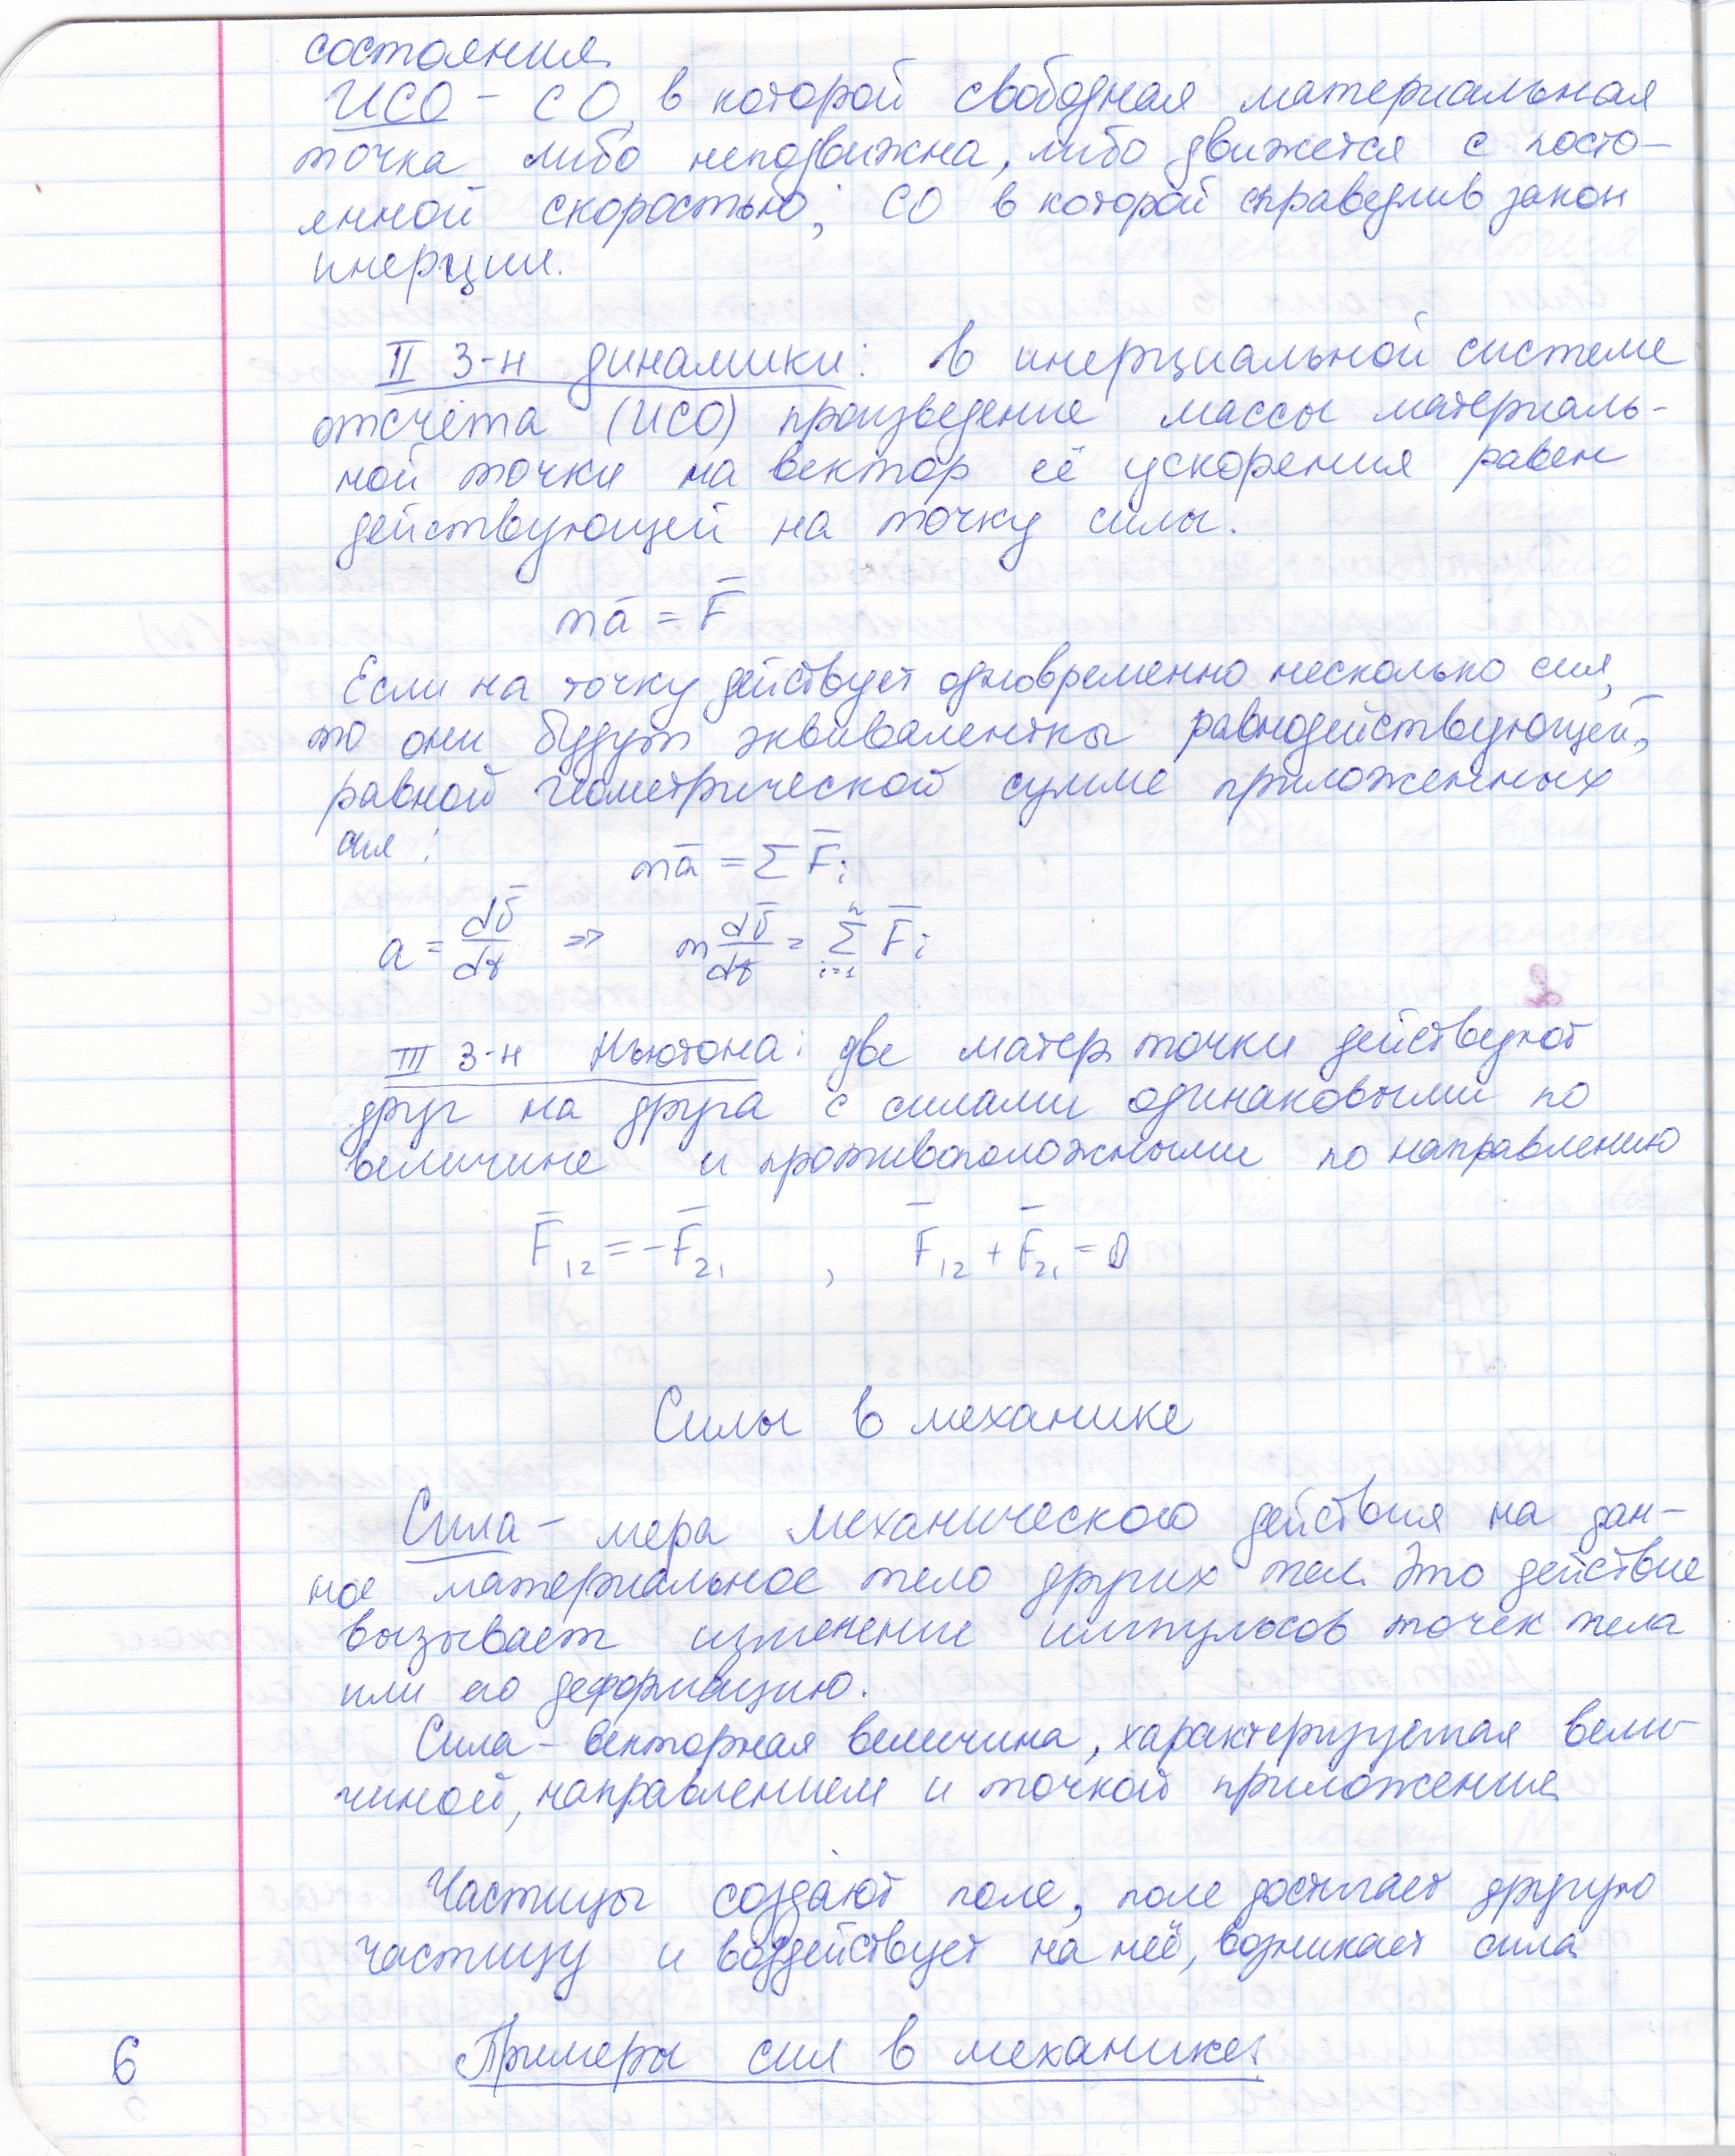 состояния
ИСО - СО, в которой свободная материальная
точка либо неподвижна, либо движется с посто-
янной скоростью; СО в которой справедлив закон
инерции.
II з-н динамики: в инерциальной системе
отсчёта (ИСО) произведение массы материаль-
ной точки на вектор её ускорения равен
действующей на точку силы.
mā = F̄
Если на точку действует одновременно несколько сил,
то они будут эквивалентны равнодействующей,
равной геометрической сумме приложенных
сил:
mā = Σ F̄i
a = dv̄/dt ⇒ m dv̄/dt = Σ F̄i (i=1, n)
III з-н Ньютона: две матер. точки действуют
друг на друга с силами одинаковыми по
величине и противоположными по направлению
F̄12 = -F̄21 , F̄12 + F̄21 = 0
Силы в механике
Сила - мера механического действия на дан-
ное материальное тело других тел. Это действие
вызывает изменение импульсов точек тела
или его деформацию.
Сила - векторная величина, характеризуемая вели-
чиной, направлением и точкой приложения
Частицы создают поле, поле достигает другую
частицу и воздействует на неё, возникает сила
Примеры сил в механике:
6